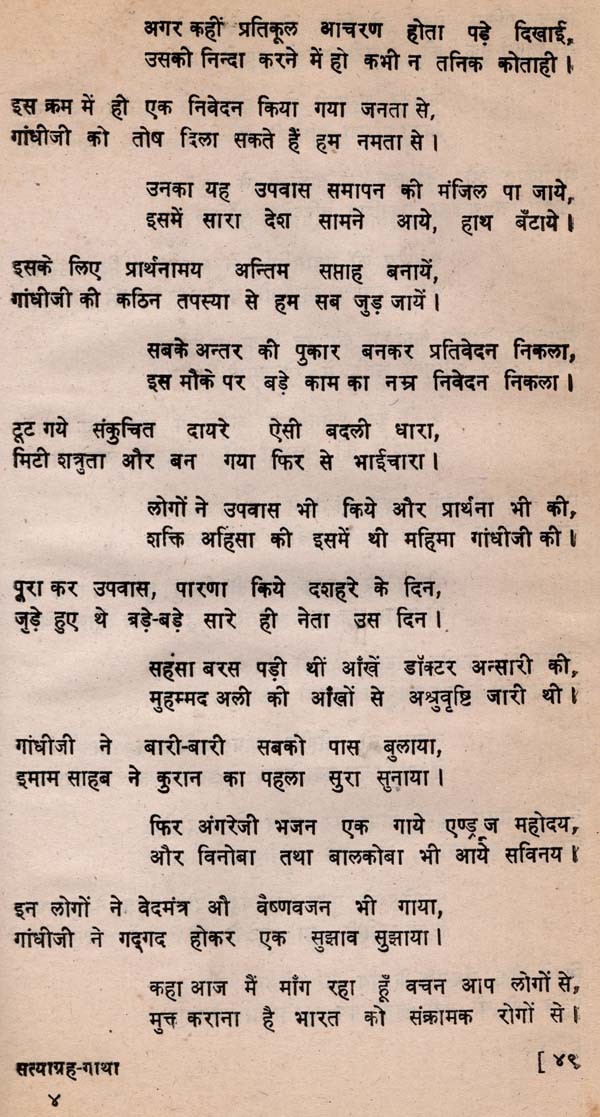 अगर कहीं प्रतिकूल आचरण होता पड़े दिखाई,
उसकी निन्दा करने में हो कभी न तनिक कोताही।
इस क्रम में ही एक निवेदन किया गया जनता से,
गांधीजी को तोष दिला सकते हैं हम नमता से।
उनका यह उपवास समापन की मंजिल पा जाये,
इसमें सारा देश सामने आये, हाथ बँटाये।
इसके लिए प्रार्थनामय अन्तिम सप्ताह बनायें,
गांधीजी की कठिन तपस्या से हम सब जुड़ जायें।
सबके अन्तर की पुकार बनकर प्रतिवेदन निकला,
इस मौके पर बड़े काम का नम्र निवेदन निकला।
टूट गये संकुचित दायरे ऐसी बदली धारा,
मिटी शत्रुता और बन गया फिर से भाईचारा।
लोगों ने उपवास भी किये और प्रार्थना भी की,
शक्ति अहिंसा की इसमें थी महिमा गांधीजी की।
पूरा कर उपवास, पारणा किये दशहरे के दिन,
जुड़े हुए थे बड़े-बड़े सारे ही नेता उस दिन।
सहंसा बरस पड़ी थीं आँखें डॉक्टर अन्सारी की,
मुहम्मद अली की आँखों से अश्रुवृष्टि जारी थी।
गांधीजी ने बारी-बारी सबको पास बुलाया,
इमाम साहब ने कुरान का पहला सुरा सुनाया।
फिर अंगरेजी भजन एक गाये एण्ड्रूज महोदय,
और विनोबा तथा बालकोबा भी आये सविनय।
इन लोगों ने वेदमंत्र औ वैष्णवजन भी गाया,
गांधीजी ने गद्‌गद होकर एक सुझाव सुझाया।
कहा आज मैं माँग रहा हूँ वचन आप लोगों से,
मुक्त कराना है भारत को संक्रामक रोगों से।
सत्याग्रह-गाथा [ ४९
४